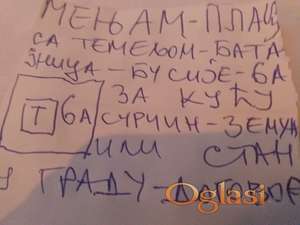 МЕЊАМ-ПЛАЦ
СА ТЕМЕЉОМ-БАТА
ЈНИЦА-БУСИЈЕ-6А
ЗА КУЋУ
Т 6А СУРЧИН-ЗЕМУН
ИЛИ СТАН
У ГРАДУ-ДОГОВОР
Oglasi